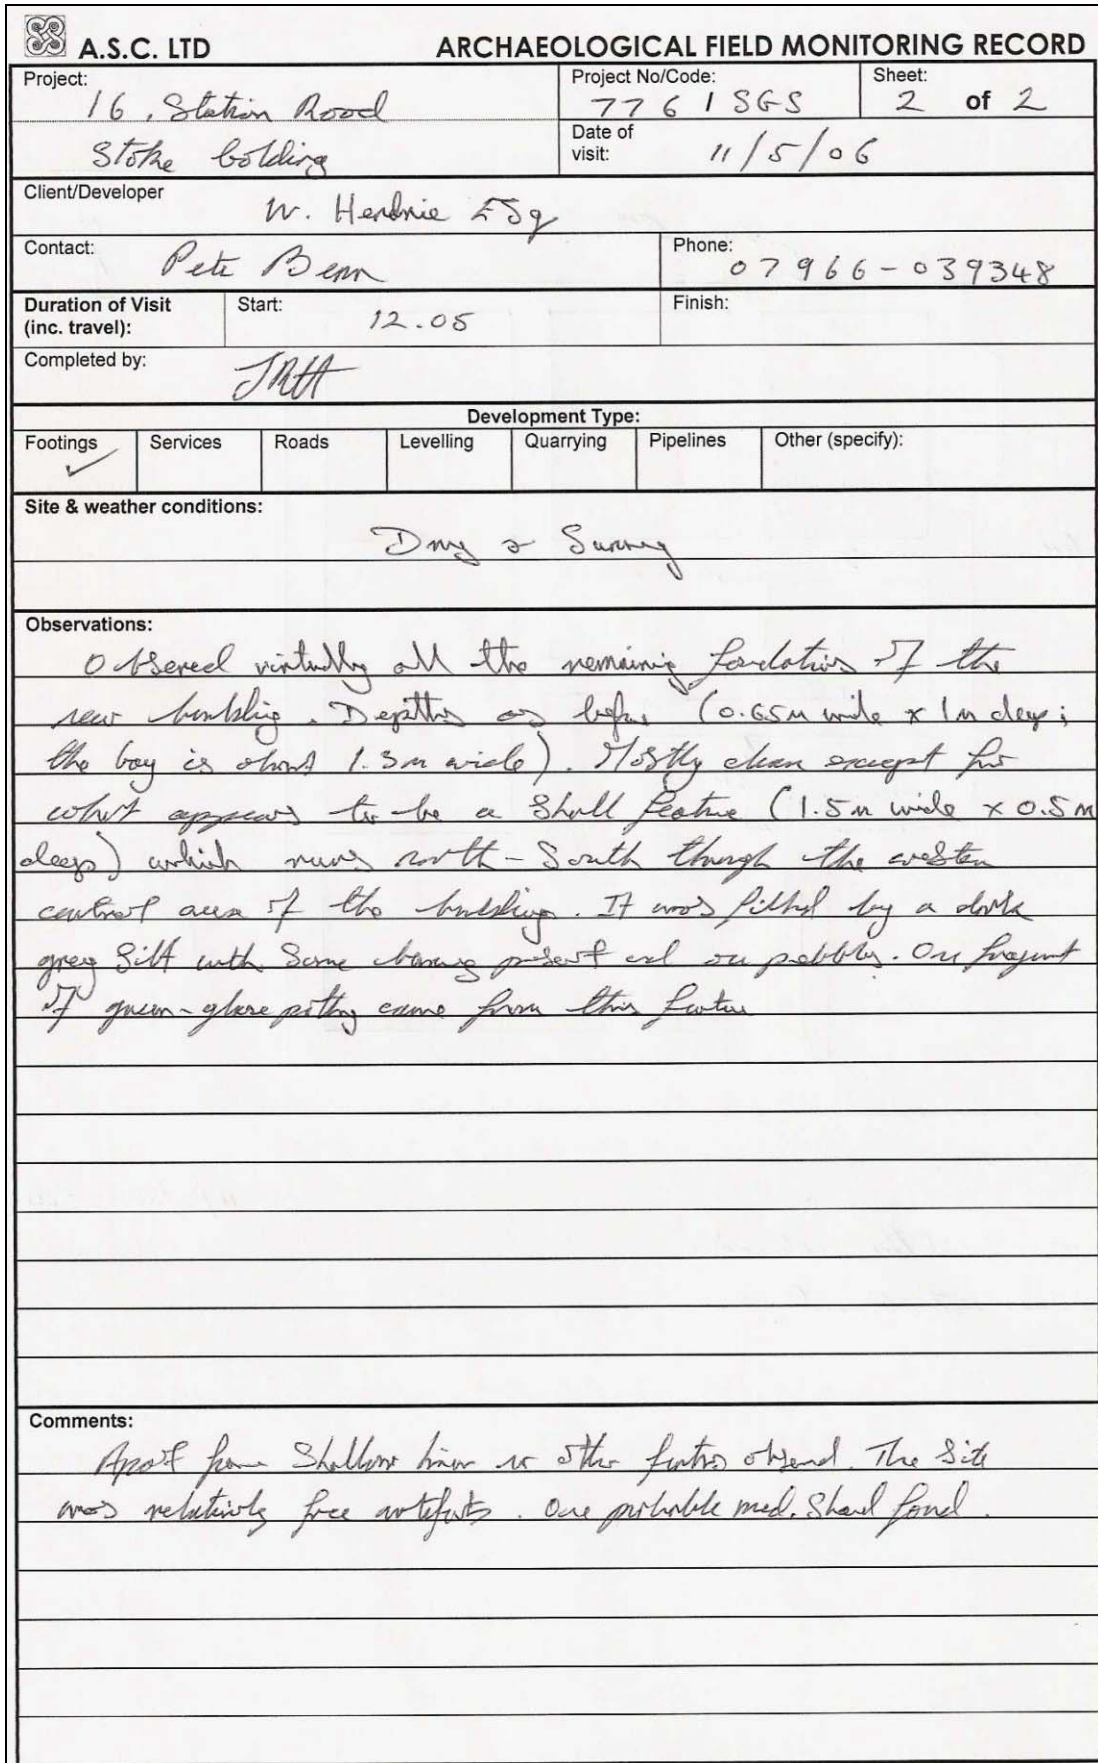 A.S.C. LTD
ARCHAEOLOGICAL FIELD MONITORING RECORD
Project:
16, Station Road
Stoke Golding
Project No/Code:
776 / SGS
Sheet:
2 of 2
Date of visit:
11/5/06
Client/Developer
W. Hendrie Esq
Contact:
Pete Benn
Phone:
07966-039348
Duration of Visit (inc. travel):
Start:
12.05
Finish:
Completed by:
JRH
Development Type:
Footings ✓
Services
Roads
Levelling
Quarrying
Pipelines
Other (specify):
Site & weather conditions:
Dry & Sunny
Observations:
Observed virtually all the remaining foundations of the
new building. Depths as before (0.65m wide x 1m deep;
the bay is about 1.3m wide). Mostly clean except for
what appears to be a feature (1.5m wide x 0.5m
deep) which runs north-South through the western
central area of the building. It was filled by a dark
grey Silt with Some present and pebbles. One fragment
of green-glaze pottery came from this feature
Comments:
Apart from Shallow other features observed. The Site
was relatively free artefacts. One probable med. Sherd found.